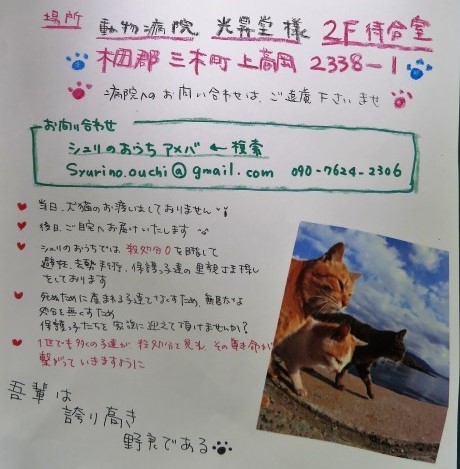 場所 動物病院 光昇堂 様 2F待合室
木田郡 三木町上高岡 2338-1
病院へのお問い合わせは、ご遠慮下さいませ
お問い合わせ
シュリのおうち アメバ ← 検索
Syurino.ouchi@gmail.com 090-7624-2306
当日、犬猫のお渡しはしておりません
後日、ご自宅へお届けいたします
シュリのおうちでは、殺処分0を目指して
避妊、去勢手術、保護っ子達の里親さま探し
をしております
死ぬために産まれる子達をなくすため、無駄な
処分を無くすため
保護っ子たちを家族に迎えて頂けませんか?
1匹でも多くの子達が 殺処分を免れ その尊き命が
繋がっていきますように
吾輩は
誇り高き
野良である